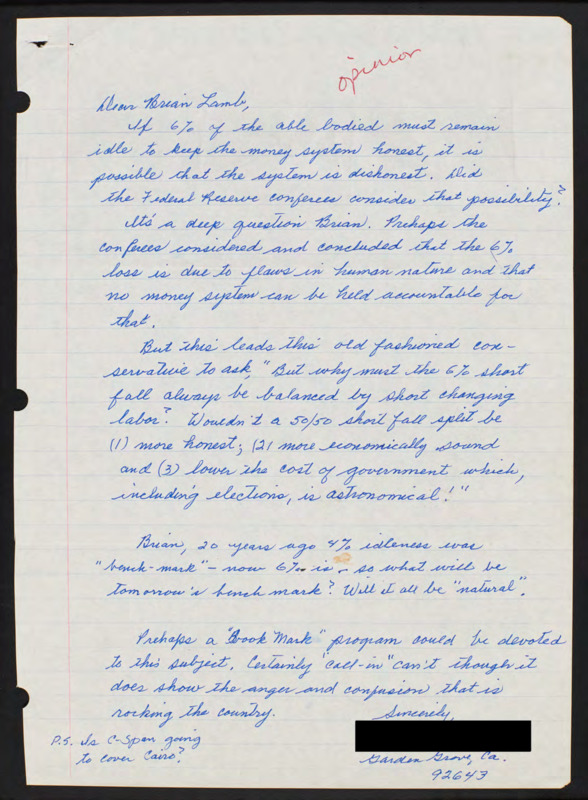 opinion
Dear Brian Lamb,
If 6% of the able bodied must remain
idle to keep the money system honest, it is
possible that the system is dishonest. Did
the Federal Reserve conferees consider that possibility?
Its' a deep question Brian. Prehaps the
conferees considered and concluded that the 6%
loss is due to flaws in human nature and that
no money system can be held accountable for
that.
But this leads this old fashioned con-
servative to ask, "But why must the 6% short
fall always be balanced by short changing
labor? Wouldn't a 50/50 short fall split be
(1) more honest; (2) more economically sound
and (3) lower the cost of government which,
including elections, is astronomical!"
Brian, 20 years ago 4% idleness was
"bench-mark" – now 6% is – so what will be
tomorrow's bench mark? Will it all be "natural".
Prehaps a "Book Mark" program could be devoted
to this subject. Certainly "call-in" can't though it
does show the anger and confusion that is
rocking the country.
Sincerely,
P.S. Is C-Span going
to cover Cairo?
Garden Grove, Ca.
92643